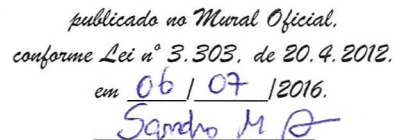 publicado no Mural Oficial,
conforme Lei nº 3.303, de 20.4.2012.
em 06 / 07 /2016.
Sandro M